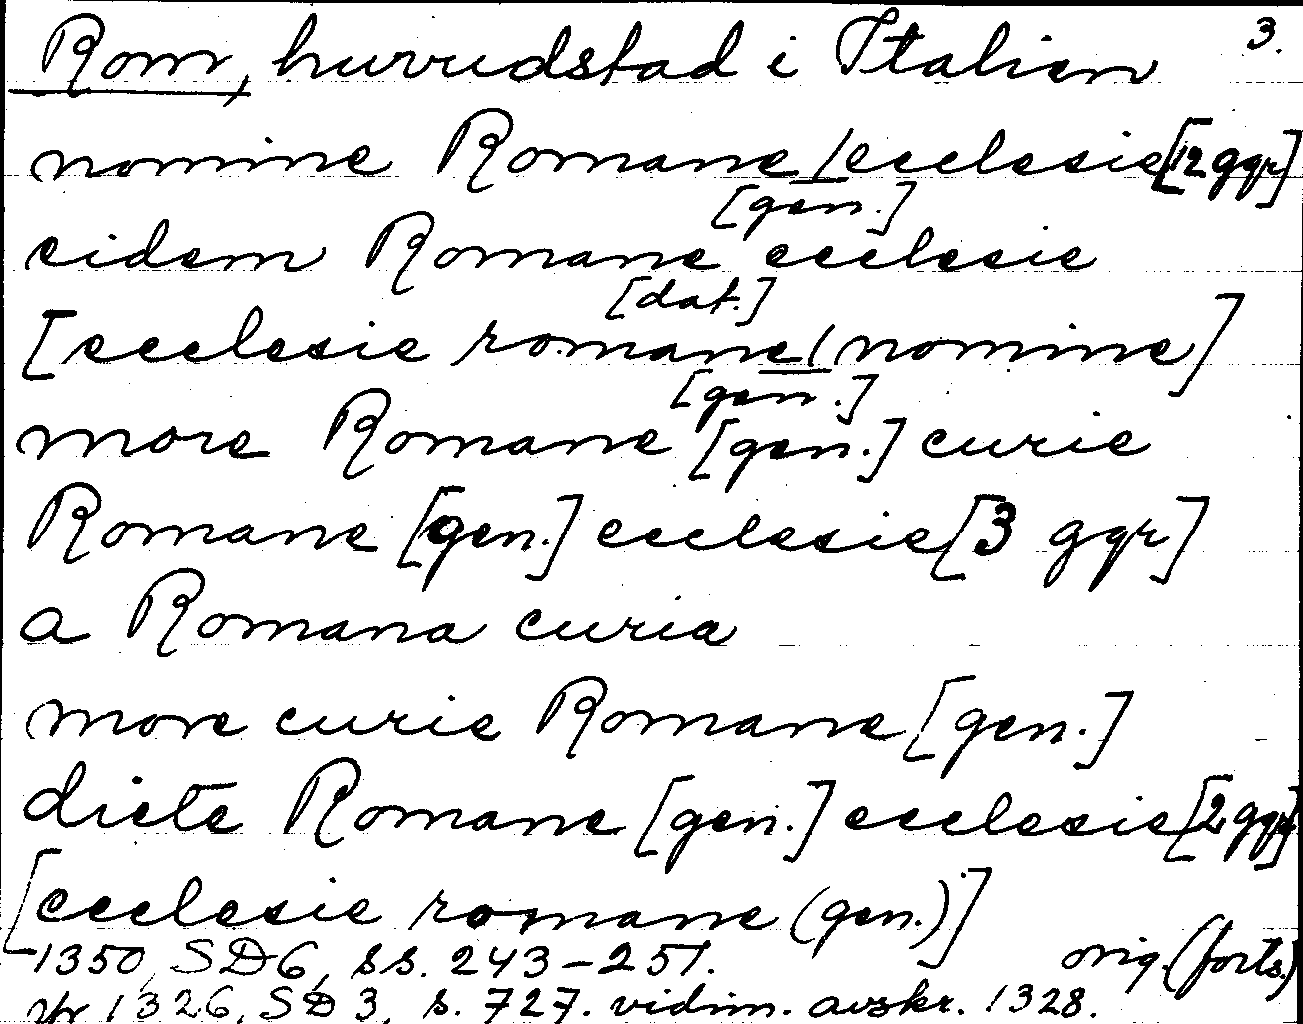 Rom, huvudstad i Italien 3.
nomine Romane/ecclesie [12 ggr]
[gen.]
eidem Romane ecclesie
[dat.]
[ecclesie romane/nomine]
[gen.]
more Romane [gen.] curie
Romane [gen.] ecclesie [3 ggr]
a Romana curia
more curie Romane [gen.]
dicte Romane [gen.] ecclesie [2 ggr]
[ecclesie romane (gen.)]
1350, SD6, ss. 243-251. orig. (forts.)
jfr 1326, SD 3, s. 727. vidim. avskr. 1328.